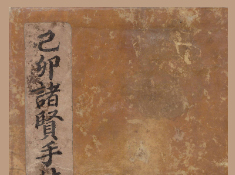 己卯諸賢手